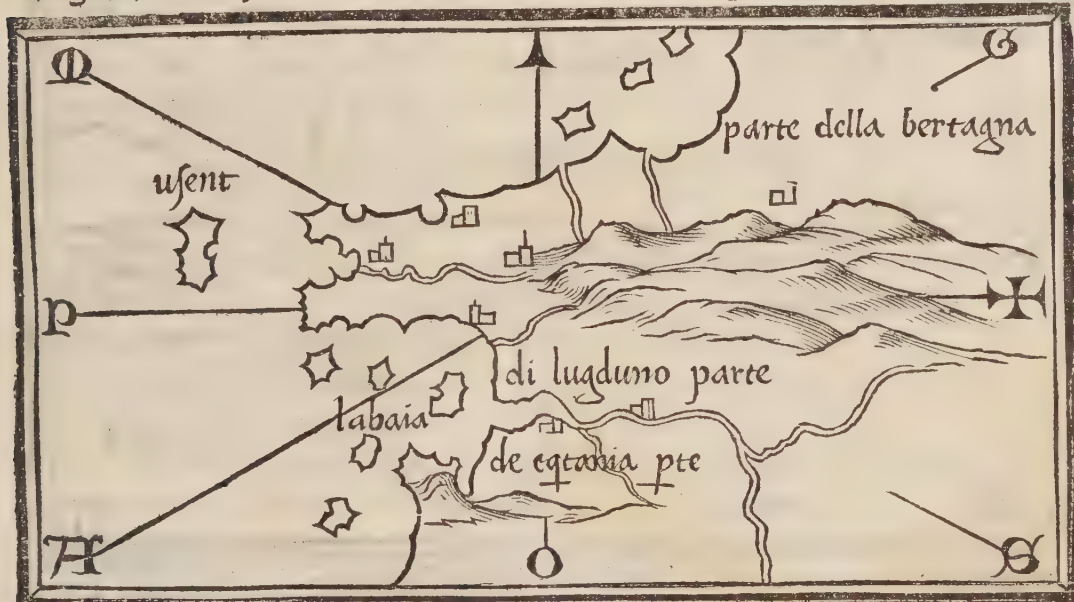 M
G
parte della bertagna
uſent
P
di lugduno parte
labaia
de eqtania pte
A
O
S